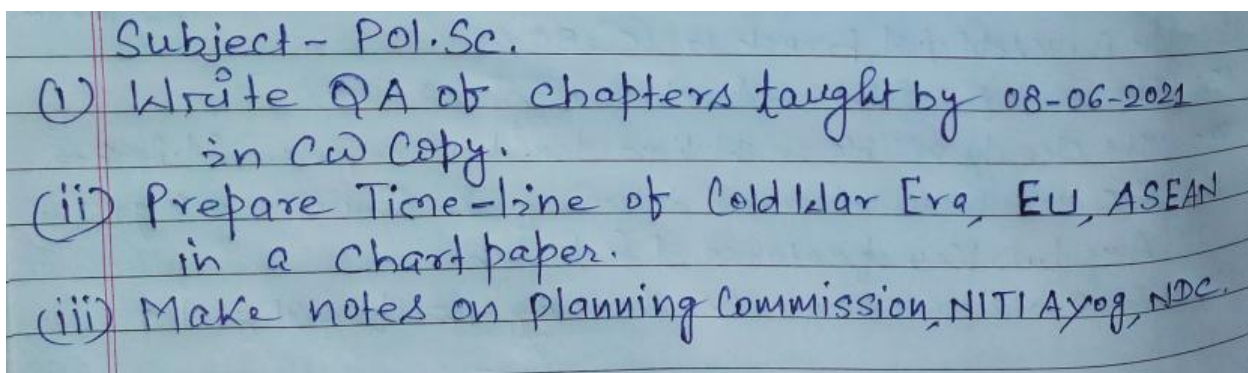 Subject - Pol.Sc.
(i) Write QA of chapters taught by 08-06-2021
in CW Copy.
(ii) Prepare Time-line of Cold War Era, EU, ASEAN
in a Chart paper.
(iii) Make notes on Planning Commission, NITI Ayog, NDC.